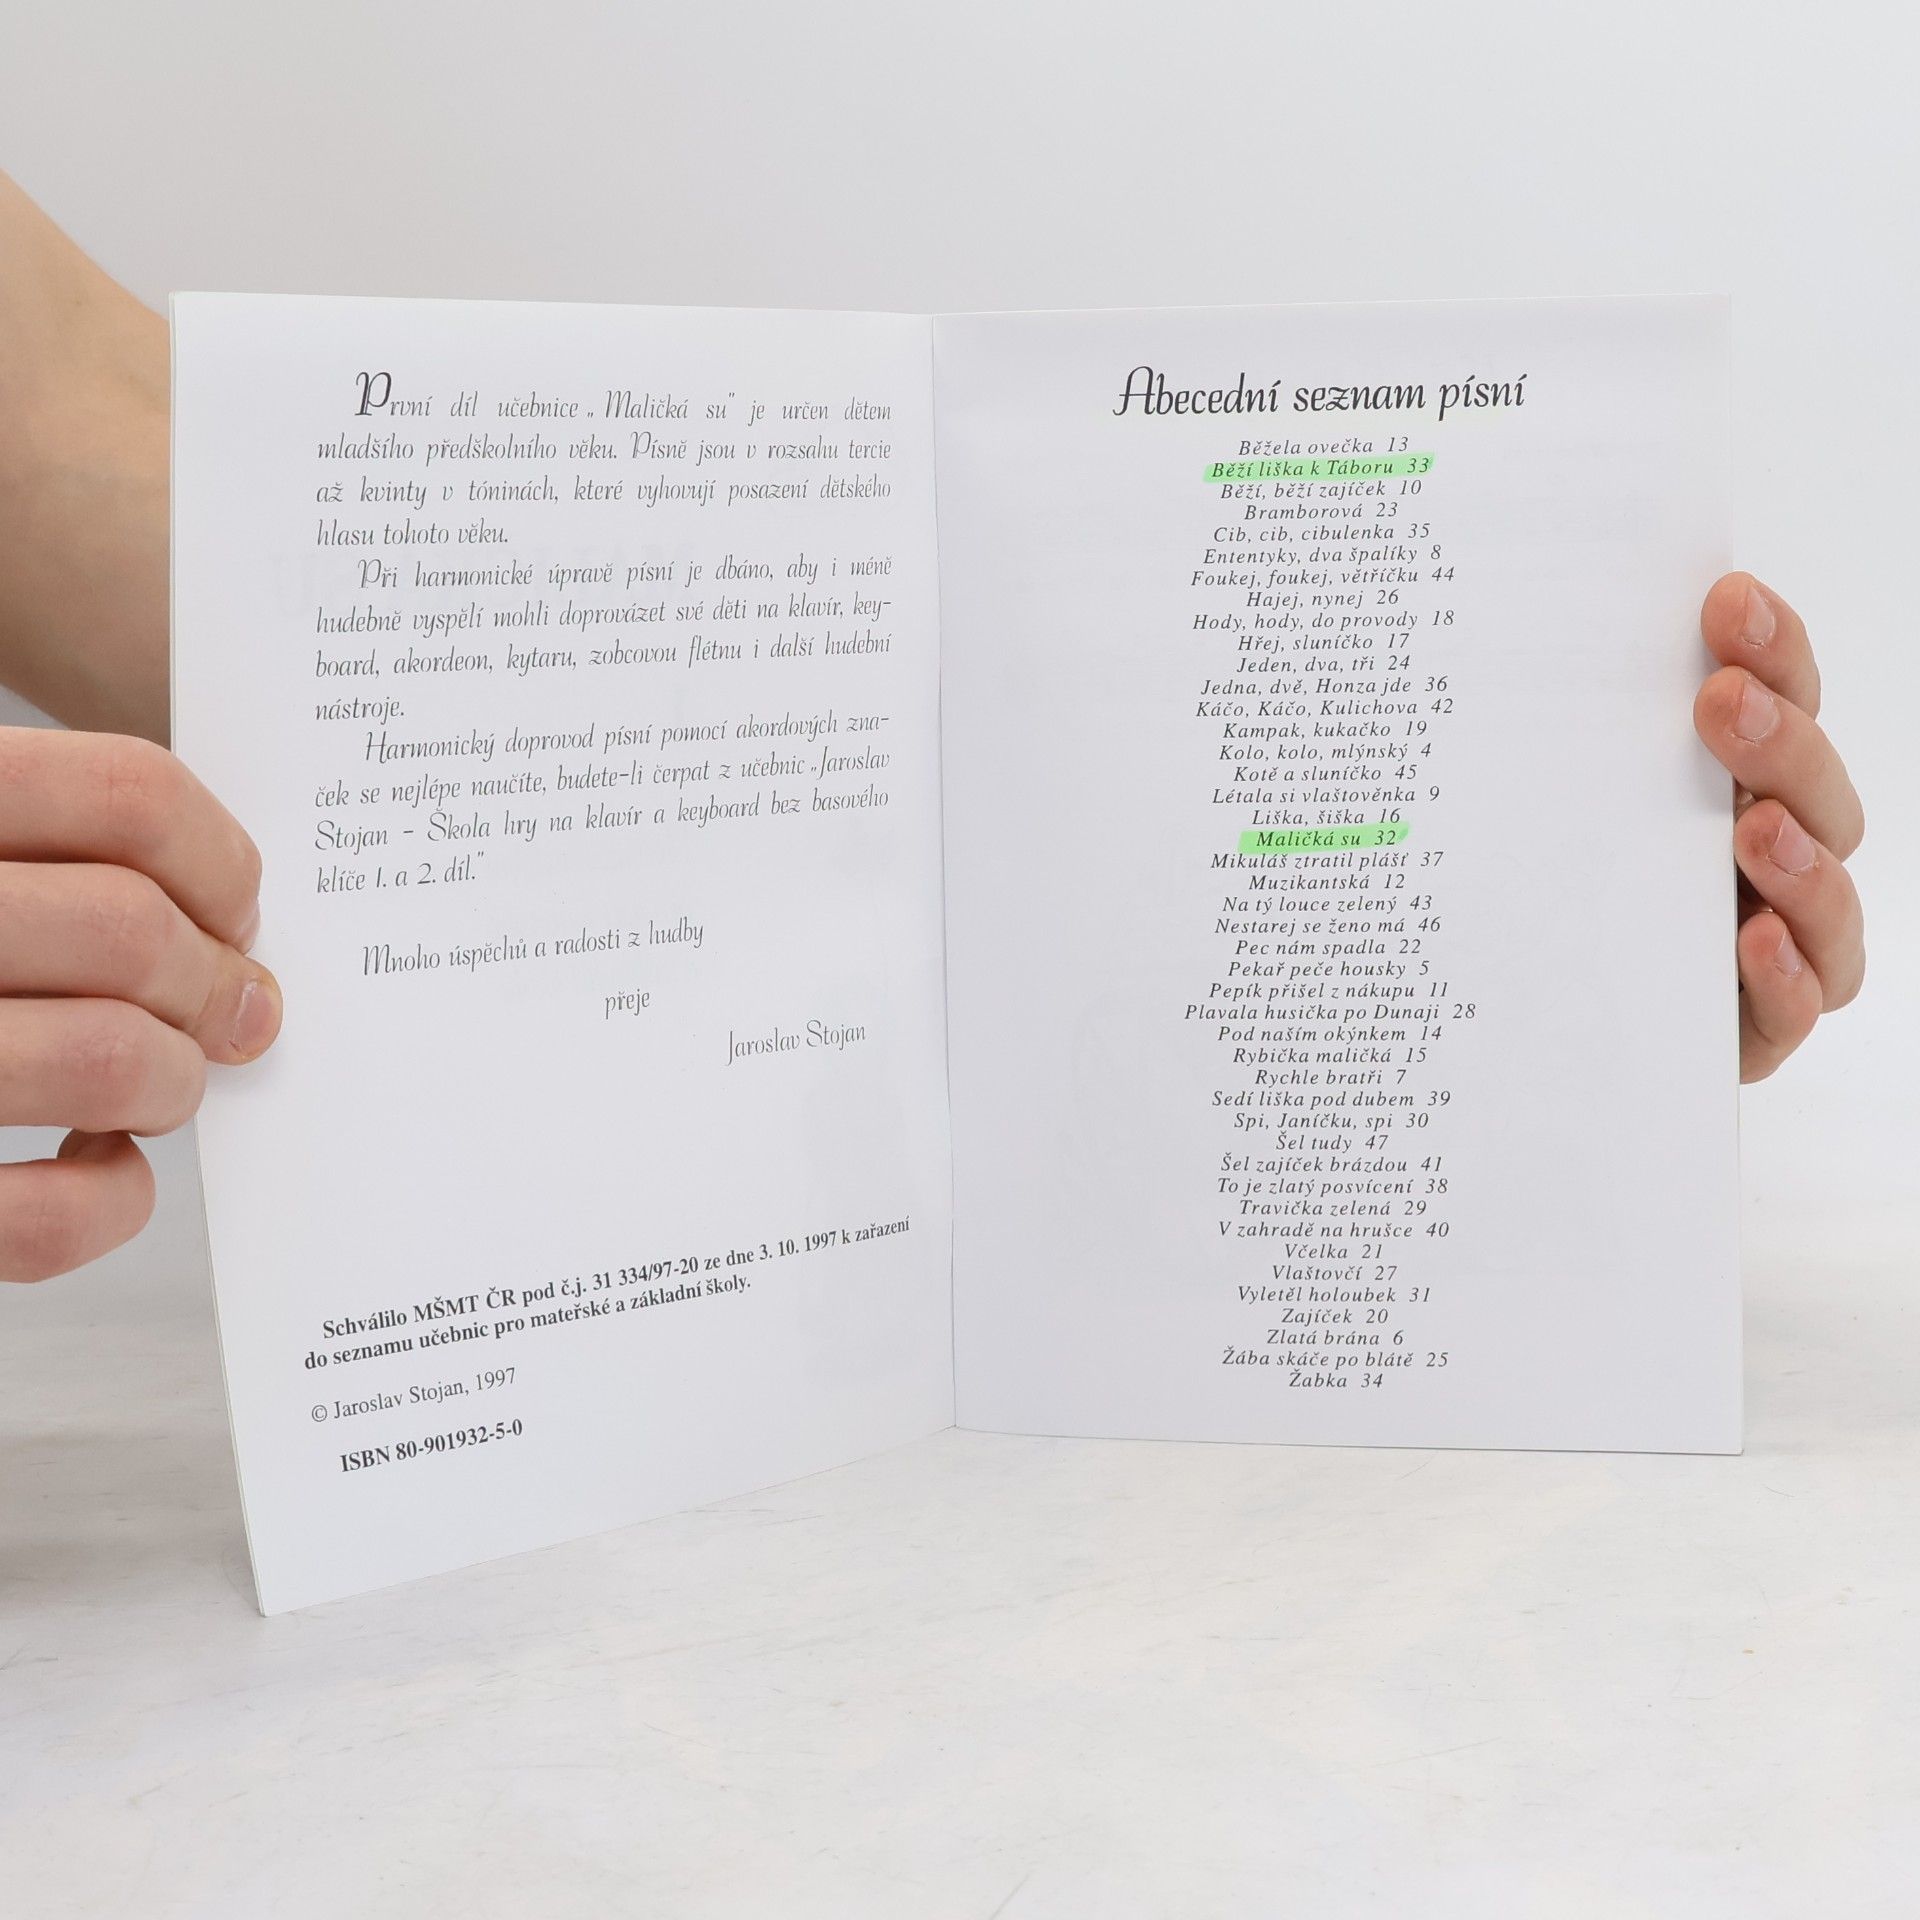 První díl učebnice „Maličká su" je určen dětem
mladšího předškolního věku. Písně jsou v rozsahu tercie
až kvinty v tóninách, které vyhovují posazení dětského
hlasu tohoto věku.
Při harmonické úpravě písní je dbáno, aby i méně
hudebně vyspělí mohli doprovázet své děti na klavír, key-
board, akordeon, kytaru, zobcovou flétnu i další hudební
nástroje.
Harmonický doprovod písní pomocí akordových zna-
ček se nejlépe naučíte, budete-li čerpat z učebnic „Jaroslav
Stojan - Škola hry na klavír a keyboard bez basového
klíče 1. a 2. díl."
Mnoho úspěchů a radosti z hudby
přeje
Jaroslav Stojan
Schválilo MŠMT ČR pod č.j. 31 334/97-20 ze dne 3. 10. 1997 k zařazení
do seznamu učebnic pro mateřské a základní školy.
© Jaroslav Stojan, 1997
ISBN 80-901932-5-0
Abecední seznam písní
Běžela ovečka 13
Běží liška k Táboru 33
Běží, běží zajíček 10
Bramborová 23
Cib, cib, cibulenka 35
Ententyky, dva špalíky 8
Foukej, foukej, větříčku 44
Hajej, nynej 26
Hody, hody, do provody 18
Hřej, sluníčko 17
Jeden, dva, tři 24
Jedna, dvě, Honza jde 36
Káčo, Káčo, Kulichova 42
Kampak, kukačko 19
Kolo, kolo, mlýnský 4
Kotě a sluníčko 45
Létala si vlaštověnka 9
Liška, šiška 16
Maličká su 32
Mikuláš ztratil plášť 37
Muzikantská 12
Na tý louce zelený 43
Nestarej se ženo má 46
Pec nám spadla 22
Pekař peče housky 5
Pepík přišel z nákupu 11
Plavala husička po Dunaji 28
Pod naším okýnkem 14
Rybička maličká 15
Rychle bratři 7
Sedí liška pod dubem 39
Spi, Janíčku, spi 30
Šel tudy 47
Šel zajíček brázdou 41
To je zlatý posvícení 38
Travička zelená 29
V zahradě na hrušce 40
Včelka 21
Vlaštovčí 27
Vyletěl holoubek 31
Zajíček 20
Zlatá brána 6
Žába skáče po blátě 25
Žabka 34